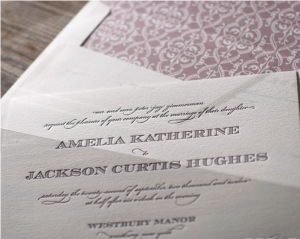 mr. and mrs. peter jay zimmerman
request the pleasure of your company at the marriage of their daughter
AMELIA KATHERINE
to
JACKSON CURTIS HUGHES
saturday the twenty second of september, two thousand and twelve
at half after six o'clock in the evening
WESTBURY MANOR